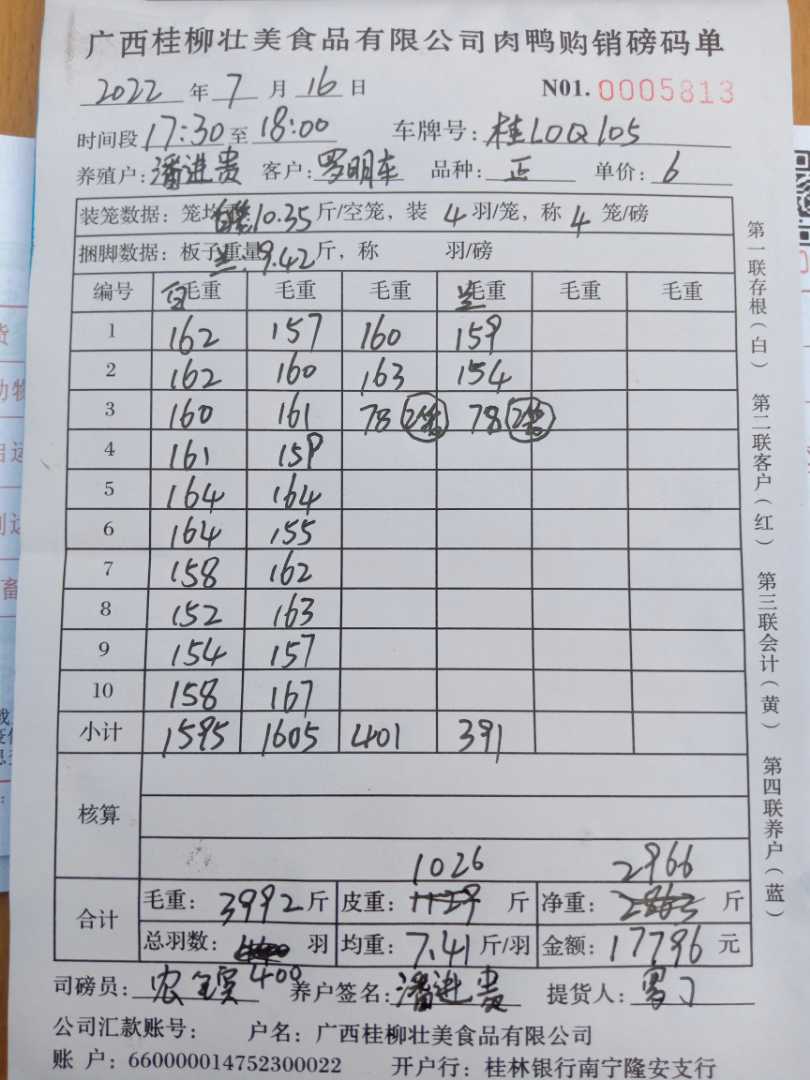 广西桂柳壮美食品有限公司肉鸭购销磅码单
2022 年 7 月 16 日 N01. 0005813
时间段 17:30 至 18:00 车牌号: 桂LOQ105
养殖户: 潘进贵 客户: 罗明车 品种: 正 单价: 6
装笼数据: 笼均 10.35 斤/空笼, 装 4 羽/笼, 称 4 笼/磅
捆脚数据: 板子重量 9.42 斤, 称 羽/磅
编号 白 毛重 毛重 毛重 兰 毛重 毛重 毛重
1 162 157 160 159
2 162 160 163 154
3 160 161 78 2笼 78 2笼
4 161 159
5 164 164
6 164 155
7 158 162
8 152 163
9 154 157
10 158 167
小计 1595 1605 401 391
核算
1026 2966
合计
毛重: 3992 斤 皮重: 1129 斤 净重: 2863 斤
总羽数: 羽 均重: 7.41 斤/羽 金额: 17796 元
400
司磅员: 养户签名: 潘进贵 提货人: 罗
公司汇款账号: 户名: 广西桂柳壮美食品有限公司
账 户: 660000014752300022 开户行: 桂林银行南宁隆安支行
第一联存根(白) 第二联客户(红) 第三联会计(黄) 第四联养户(蓝)